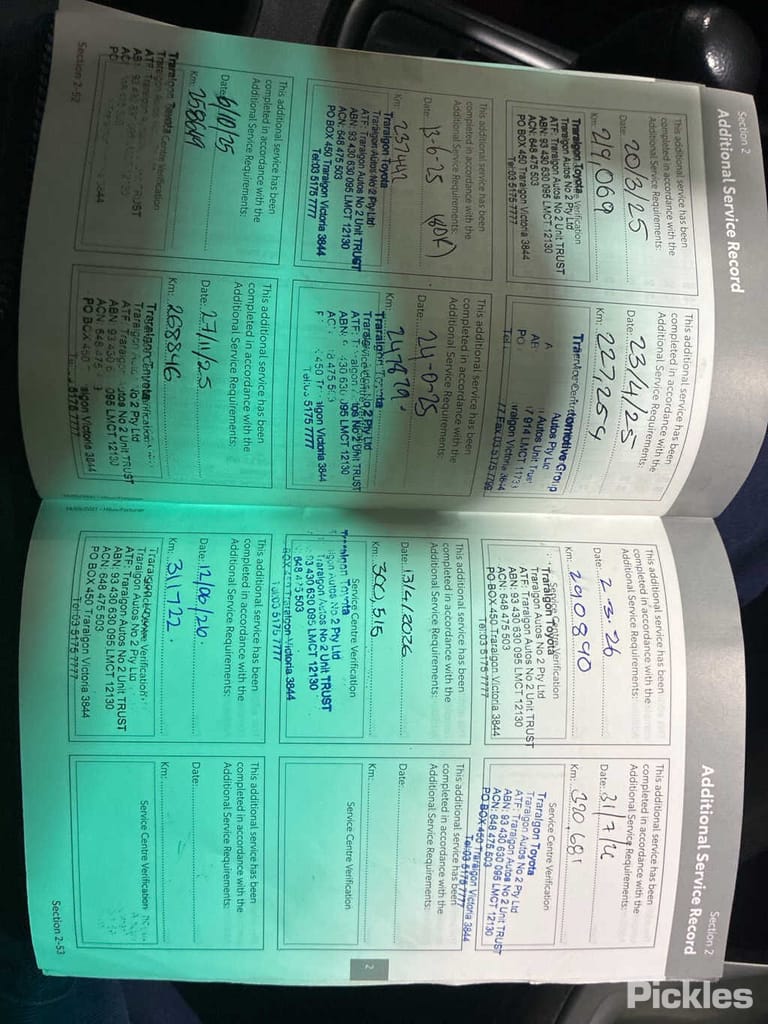 Section 2
Additional Service Record
This additional service has been
completed in accordance with the
Additional Service Requirements:
Date: 20/3/25
Km: 219,069
Service Centre Verification
Traralgon Toyota
Traralgon Autos No 2 Pty Ltd
ATF: Traralgon Autos No 2 Unit TRUST
ABN: 93 430 630 095 LMCT 12130
ACN: 648 475 503
PO BOX 450 Traralgon Victoria 3844
Tel:03 5175 7777
This additional service has been
completed in accordance with the
Additional Service Requirements:
Date: 23/4/25
Km: 227,259
Automotive Group
Autos Pty
Autos Unit Trust
914 LMCT 11731
Traralgon Victoria 3844
77 Fax 03 5175 7799
This additional service has been
completed in accordance with the
Additional Service Requirements:
Date: 13-6-25
Km: 237442
Traralgon Toyota
Traralgon Autos No 2 Pty Ltd
ATF: Traralgon Autos No 2 Unit TRUST
ABN: 93 430 630 095 LMCT 12130
ACN: 648 475 503
PO BOX 450 Traralgon Victoria 3844
Tel:03 5175 7777
This additional service has been
completed in accordance with the
Additional Service Requirements:
Date:
Km: 247879
Traralgon Toyota
No 2 Pty Ltd
No 2 Unit TRUST
ABN: 93 430 630 095 LMCT 12130
450 Traralgon Victoria 3844
Tel:03 5175 7777
This additional service has been
completed in accordance with the
Additional Service Requirements:
Date: 6/10/25
Km: 258649
Traralgon Toyota
Section 2-52
This additional service has been
completed in accordance with the
Additional Service Requirements:
Date: 27/11/25
Km: 268846
Traralgon Toyota
No 2 Pty Ltd
ATF: Traralgon Autos No 2 Unit TRUST
ABN: 93 430 6 095 LMCT 12130
ACN: 648 475
PO BOX 450 Traralgon Victoria 3844
5175 7777
Section 2
Additional Service Record
This additional service has been
completed in accordance with the
Additional Service Requirements:
Date: 2-3-26
Km: 290890
Service Centre Verification
Traralgon Toyota
Traralgon Autos No 2 Pty Ltd
ATF: Traralgon Autos No 2 Unit TRUST
ABN: 93 430 630 095 LMCT 12130
ACN: 648 475 503
PO BOX 450 Traralgon Victoria 3844
Tel:03 5175 7777
This additional service has been
completed in accordance with the
Additional Service Requirements:
Date:
Km: 320,681
Service Centre Verification
Traralgon Toyota
Traralgon Autos No 2 Pty Ltd
ATF: Traralgon Autos No 2 Unit TRUST
ABN: 93 430 630 095 LMCT 12130
ACN: 648 475 503
PO BOX 450 Traralgon Victoria 3844
Tel:03 5175 7777
This additional service has been
completed in accordance with the
Additional Service Requirements:
Date: 13/4/2026
Km: 300,515
Service Centre Verification
Traralgon Toyota
Traralgon Autos No 2 Pty Ltd
Traralgon Autos No 2 Unit TRUST
93 430 630 095 LMCT 12130
648 475 503
BOX 450 Traralgon Victoria 3844
Tel:03 5175 7777
This additional service has been
completed in accordance with the
Additional Service Requirements:
Date:
Km:
Service Centre Verification
This additional service has been
completed in accordance with the
Additional Service Requirements:
Date: 12/06/26
Km: 311,722
Service Centre Verification
Traralgon Toyota
Traralgon Autos No 2 Pty Ltd
ATF: Traralgon Autos No 2 Unit TRUST
ABN: 93 430 630 095 LMCT 12130
ACN: 648 475 503
PO BOX 450 Traralgon Victoria 3844
Tel:03 5175 7777
This additional service has been
completed in accordance with the
Additional Service Requirements:
Date:
Km:
Service Centre Verification
Section 2-53
2
Pickles